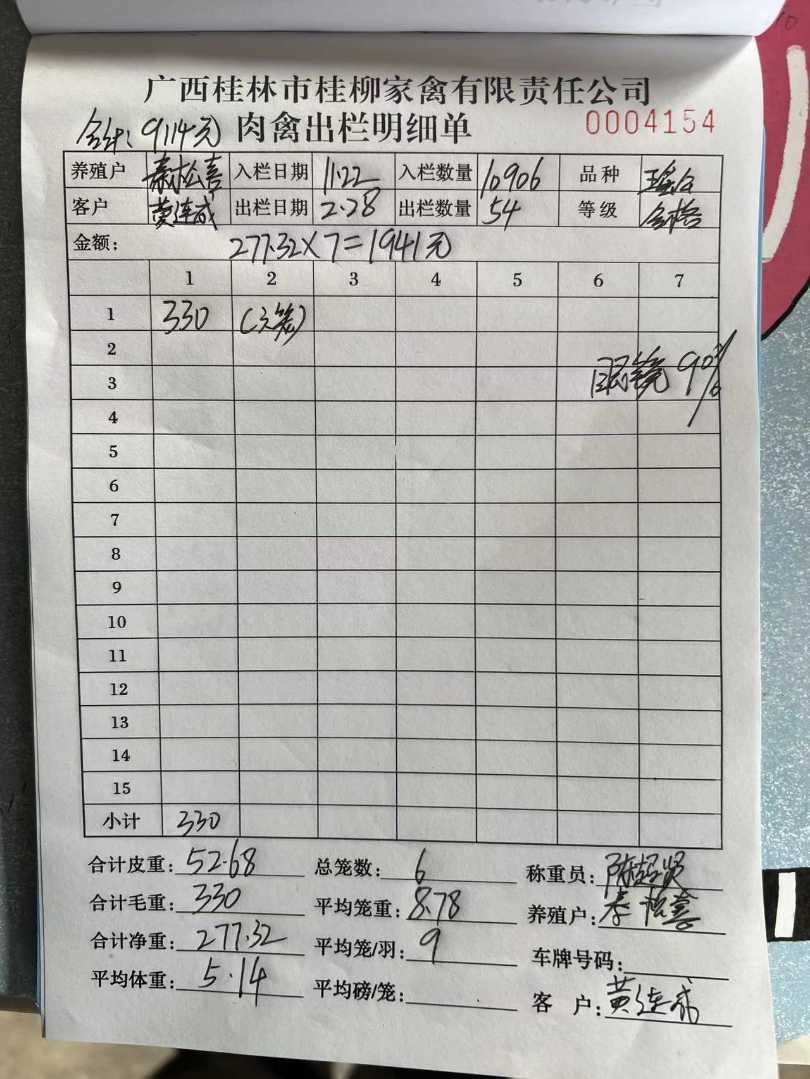 广西桂林市桂柳家禽有限责任公司
合计：9114元 肉禽出栏明细单 0004154
养殖户 秦松喜 入栏日期 11.22 入栏数量 10906 品种
客户 黄连成 出栏日期 2.28 出栏数量 54 等级 合格
金额： 277.32×7=1941元
1 2 3 4 5 6 7
1 330
2
3 眼镜 90%
4
5
6
7
8
9
10
11
12
13
14
15
小计 330
合计皮重：52.68 总笼数：6 称重员：陈超贤
合计毛重：330 平均笼重：8.78 养殖户：秦松喜
合计净重：277.32 平均笼/羽：9 车牌号码：
平均体重：5.14 平均磅/笼： 客 户：黄连成